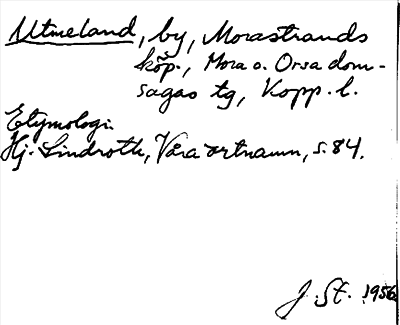 Utmeland, by, Morastrands
köp., Mora o. Orsa dom-
sagas tg, Kopp. l.
Etymologi.
Hj. Lindroth, Våra ortnamn, s. 84.
J. St. 1956